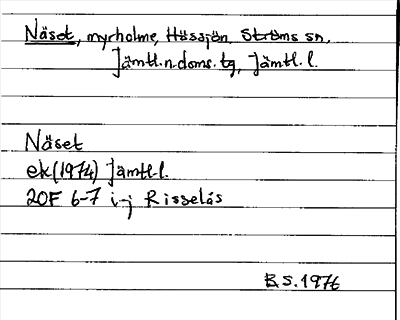 Näset, myrholme, Hässjön, Ströms sn,
Jämtl.n.doms.tg, Jämtl.l.
Näset
ek(1974) Jämtl.l.
20F 6-7 i-j Risselås
B.S.1976